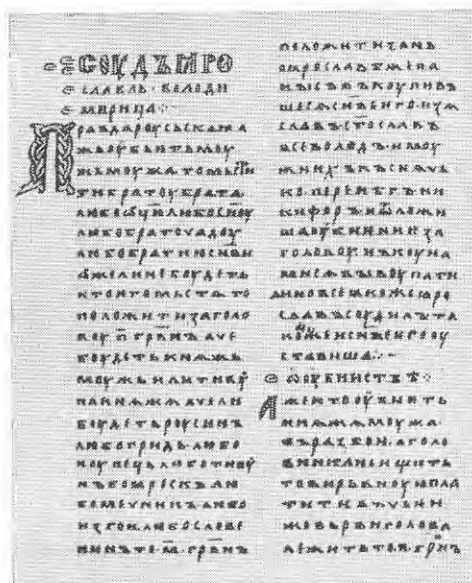 СОУДЪ ꙖРО
СЛАВЛЬ ВОЛОДИ
МИРИЦА :·
Правда роусьскаꙗ а
же оубьѥть моу
жь моужа то мьсти
ти братоу брата
любо ѡц҃ю ли любо сн҃оу
любо братоучадоу
любо братню сн҃ви
аже ли не боудеть
кто ѥго мьстѧ то
положити за голо
воу п҃ грвн҃ъ аче
боудеть кнѧжь
моужь или тивоу
на кнѧжа аче ли
боудеть роусинъ
любо гридь любо
коупець любо тивоу
нъ боꙗрескъ лю
бо мечникъ любо
изгои любо слове
нинъ то м҃ грвн҃ъ
положити за нь
по ꙗрославѣ же па
кы съвъкоупивъ
шесѧ сн҃ве ѥго изѧ
славъ ст҃ославъ
всеволодъ и моу
жи ихъ къснѧчь
ко перенѣгъ ни
кифоръ и ѿложи
ша оубиениѥ за
головоу нъ коуна
ми сѧ выкоупати
а ино всѥ ꙗкоже ꙗро
славъ соудилъ та
коже и сн҃ве ѥго оу
ставиша :·
ѡ оубииствѣ :·
Аже кто оубиѥть
кнѧжа моужа
въ разбои а голо
вника не ищють
то вирьвноую пла
тити въ чьѥи
же вьрви голова
лежить то п҃ грвн҃ъ